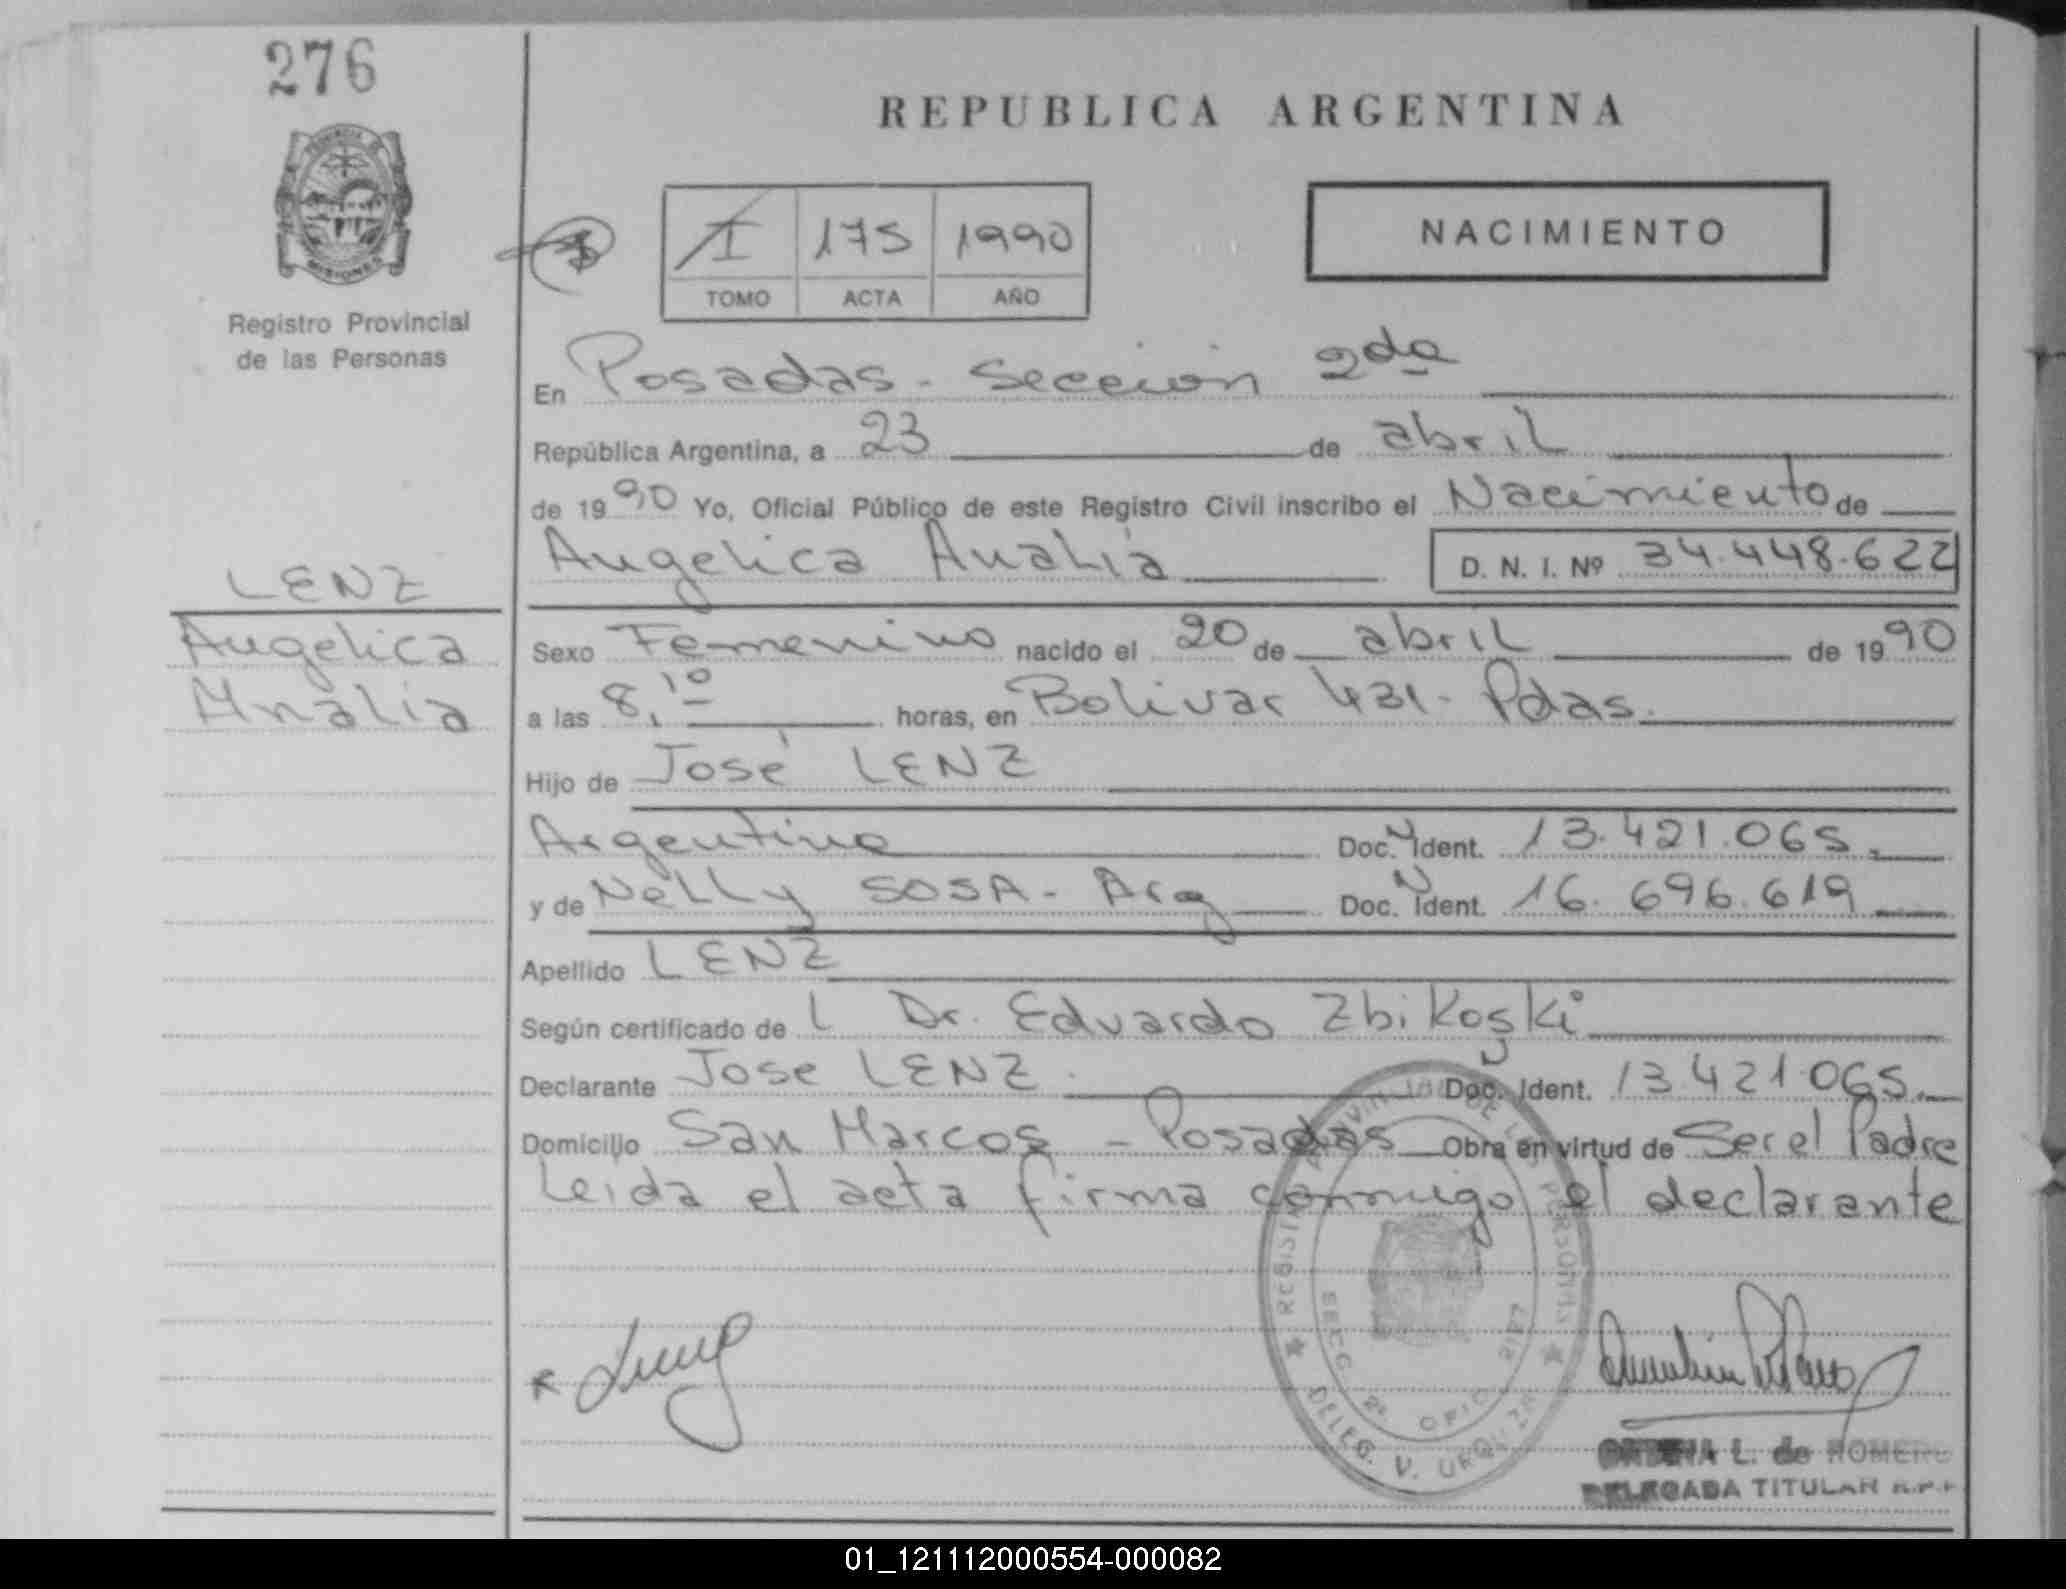 276
REPUBLICA ARGENTINA
PROVINCIA DE
MISIONES
I 175 1990
TOMO ACTA AÑO
NACIMIENTO
Registro Provincial
de las Personas
En Posadas - Sección 2da
República Argentina, a 23 de abril
de 1990 Yo, Oficial Público de este Registro Civil inscribo el Nacimiento de
Angelica Analía D. N. I. Nº 34.448.622
LENZ
Angelica
Analia
Sexo Femenino nacido el 20 de abril de 1990
a las 8,10 horas, en Bolivar 431 - Pdas.
Hijo de José LENZ
Argentino Doc. N Ident. 13.421.065.
y de Nelly SOSA - Arg Doc. N Ident. 16.696.619
Apellido LENZ
Según certificado de L Dr. Eduardo Zbikoski
Declarante Jose LENZ. Doc. N Ident. 13.421.065.
Domicilio San Marcos - Posadas Obra en virtud de Ser el Padre
Leida el acta firma conmigo el declarante
REGISTRO PROVINCIAL DE LAS PERSONAS
SECC 2ª OFIC 2127
DELEG. V. URQUIZA
L. de ROMERO
DELEGADA TITULAR R.P.P
01_121112000554-000082